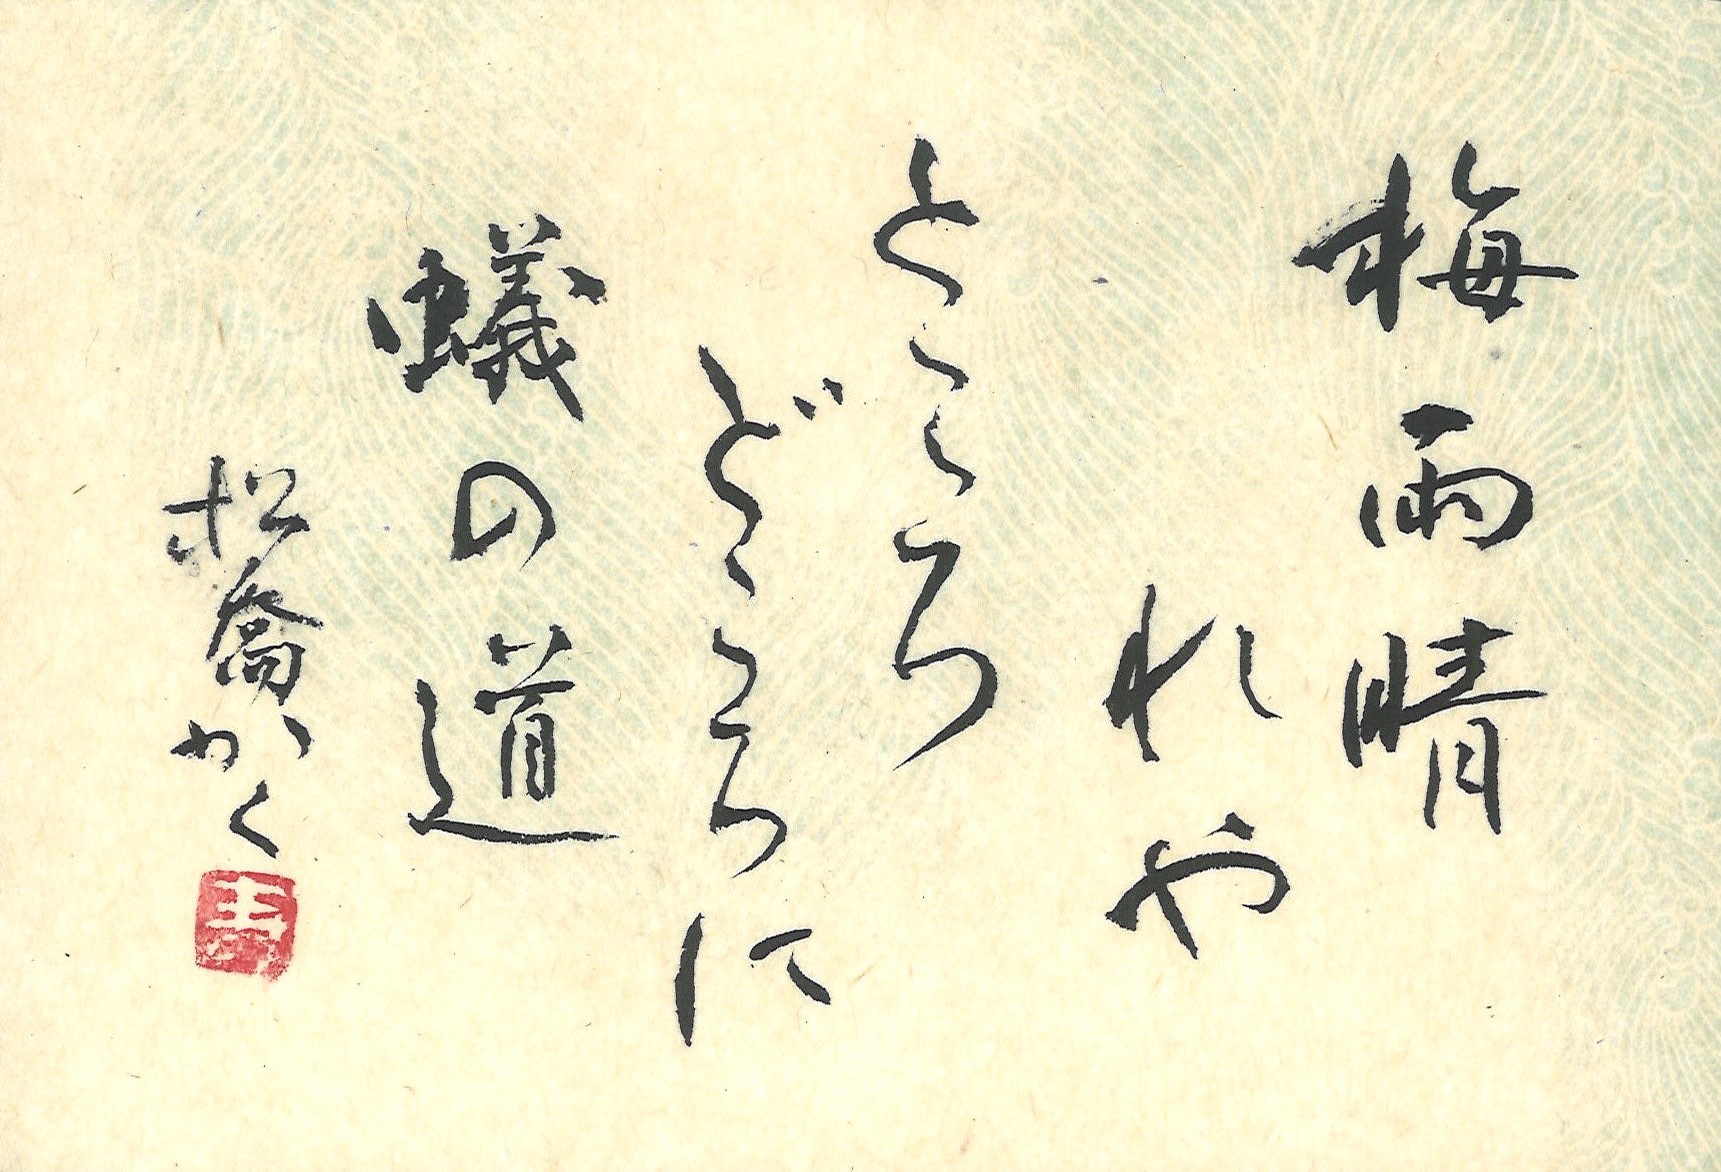 梅雨晴
れや
ところ
どころに
蟻の道
松喬かく